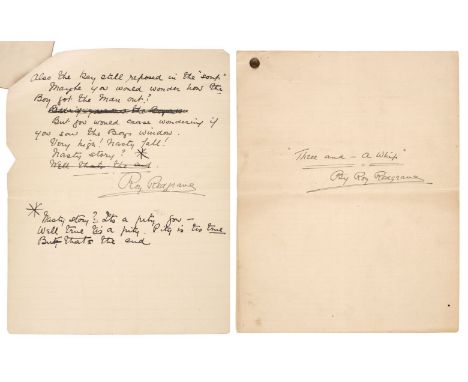 Also the key still reposed in the "soup"
Maybe you would wonder how the
Boy got the Man out?
But you would cease wondering if
you saw the Boys window.
Very high! Nasty fall!
Nasty story? *
Well thats the end.
Roy Redgrave
* Nasty story? Its a pity you –
Well true its a pity. Pity is tis true
But thats the end
"Three and – A Whip"
By Roy Redgrave